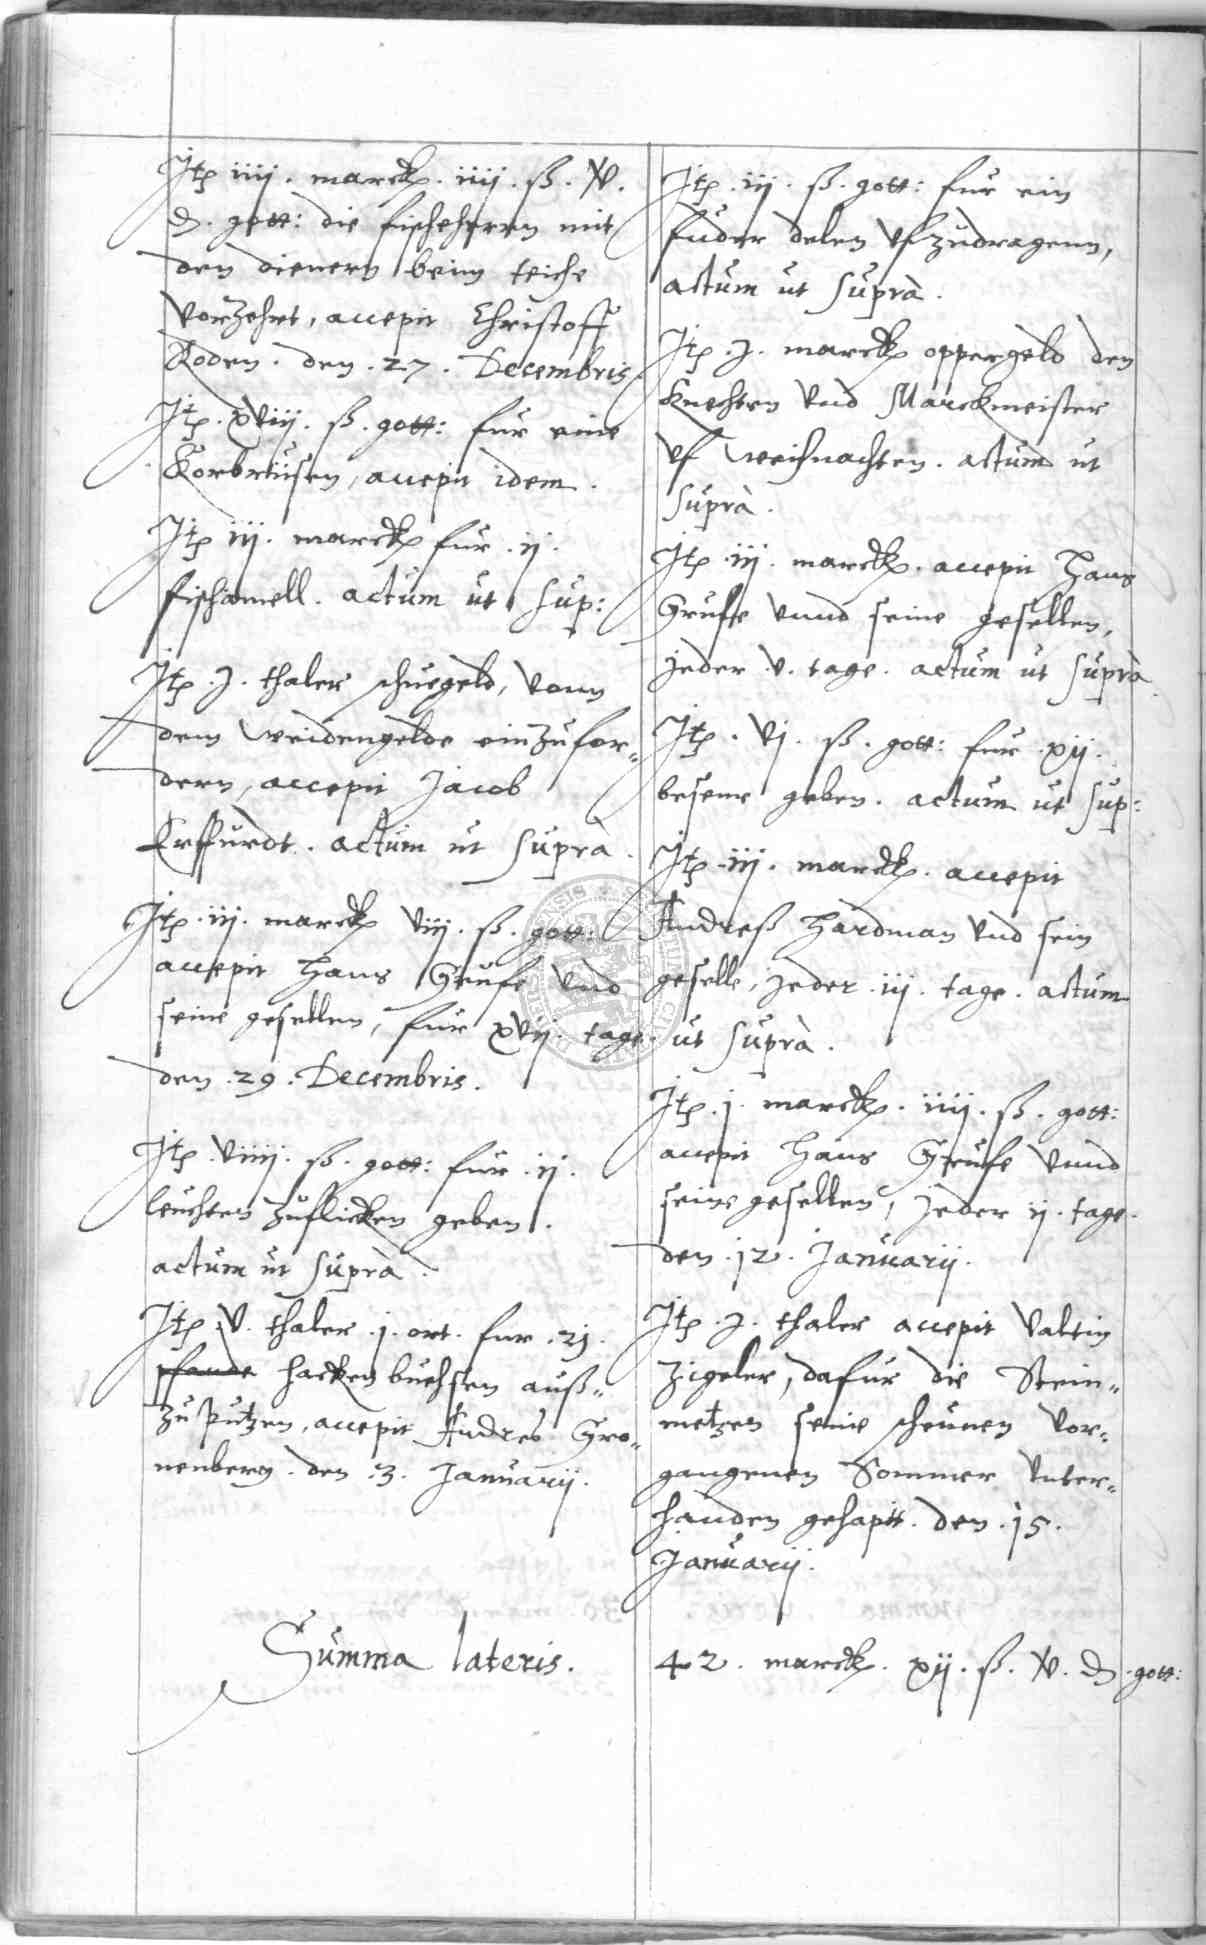 Itẽ iiij. marck. iiij. ß. v.
₰. gott: die fischehern mit
den dienern beim teiche
vorzehrt, accepit Christoff
Koden. den. 27. Decembris.
Itẽ. xviij. ß. gott: fur eine
accepit idem.
Itẽ iij. marck fur .ij.
actum ut sup:
Itẽ .j. thaler schuegeld, vonn
dem weidengelde einzufor-
dern, accepit Jacob
Erffurdt. actum ut supra.
Itẽ. iij. marck viij. ß. gott:
accepit Hans Grufe vnd
seine gesellen, fur xvij. tage.
den .29. Decembris.
Itẽ. viiij. ß. gott: fur .ij.
leuchten zuflicken geben.
actum ut supra.
Itẽ. v. thaler .j. ort. fur .21.
hacken buchsen auß-
zuputzen, accepit Andres Gro-
nenberg. den .3. Januarij.
Itẽ. iij. ß. gott: fur ein
fuder delen vfzudragenn,
actum ut supra.
Itẽ .j. marck oppergeld den
Knechten vnd Marckmeister
vf weihnachten. actum ut
supra.
Itẽ .iij. marck. accepit Hans
Grufe vnnd seine gesellen,
jeder .v. tage. actum ut supra.
Itẽ. vj. ß. gott: fur .xij.
beseme geben. actum ut sup:
Itẽ .iij. marck. accepit
Andreß Hardman vnd sein
geselle, jeder .iij. tage. actum
ut supra.
Itẽ .j. marck. iiij. ß. gott:
accepit Hans Grufe vnnd
seine gesellen, jeder ij. tage.
den .12. Januarij.
Itẽ .j. thaler accepit Valtin
Zigeler, dafur die Stein-
metzen seine scheunen vor-
gangenen Sommer vnter-
handen gehaptt. den .15.
Januarij.
Summa lateris. 42. marck. xij. ß. v. ₰. gott: